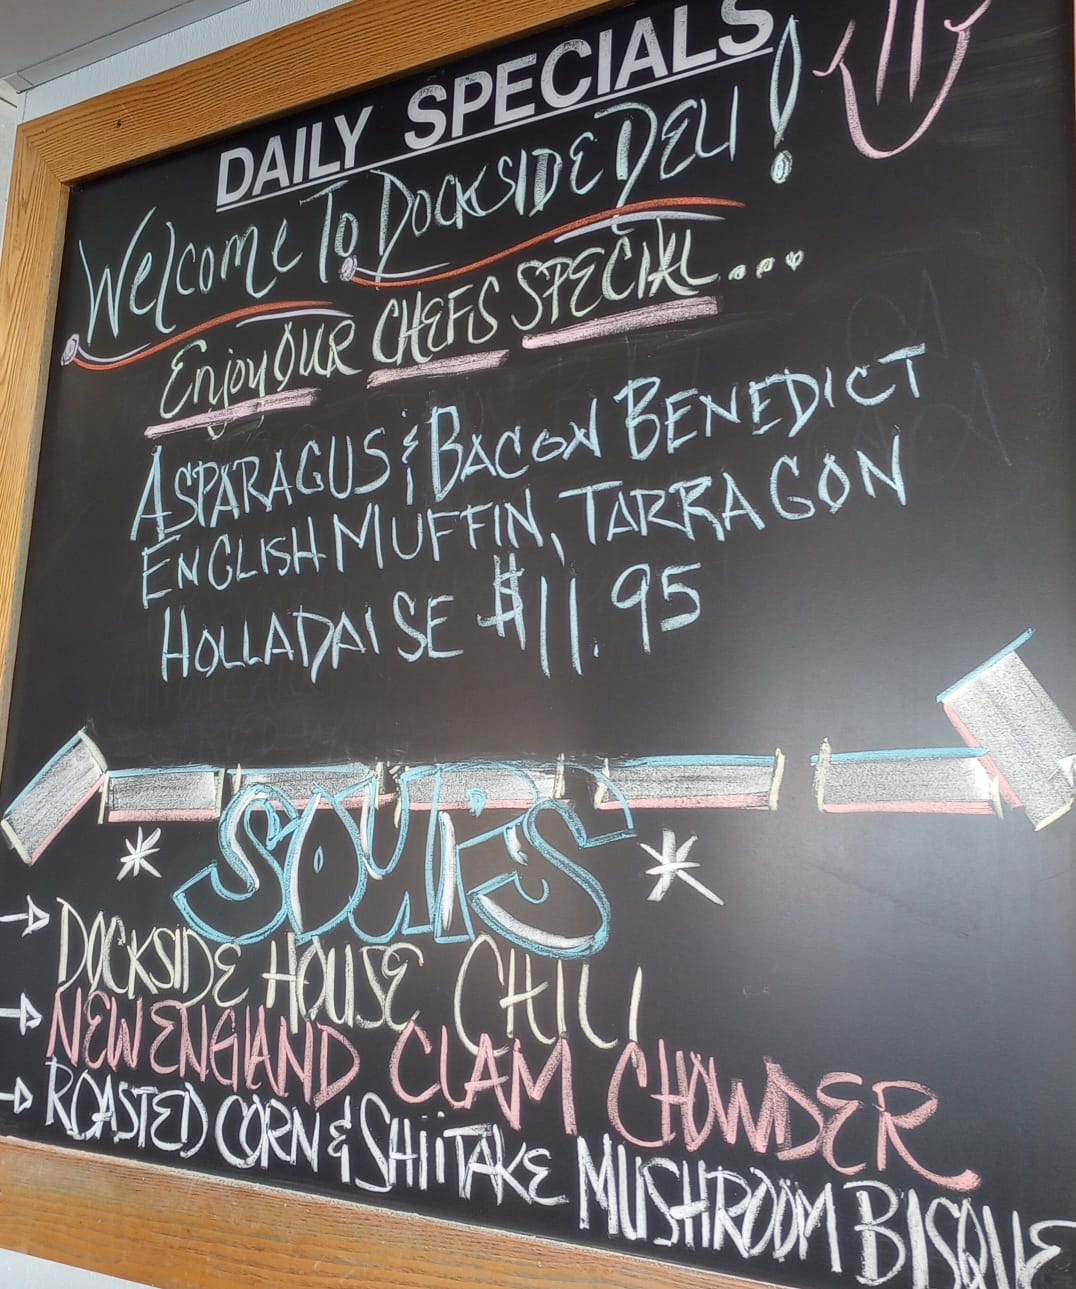 DAILY SPECIALS
Welcome To DOCKSIDE DELI!
Enjoy OUR CHEFS SPECIAL....
ASPARAGUS & BACON BENEDICT
ENGLISH MUFFIN, TARRAGON
HOLLADAISE $11.95
* SOUPS *
DOCKSIDE HOUSE CHILI
NEW ENGLAND CLAM CHOWDER
ROASTED CORN & SHIITAKE MUSHROOM BISQUE